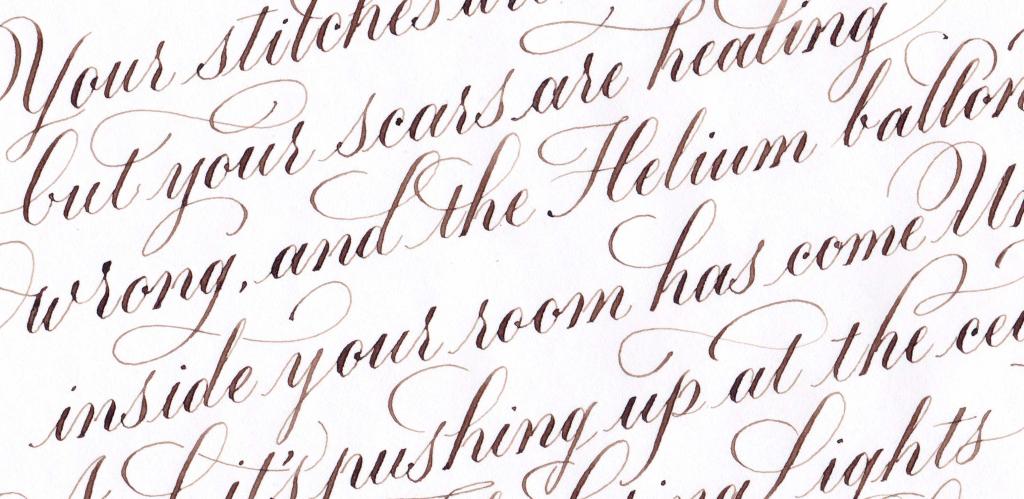 Your stitches are
but your scars are healing
wrong, and the Helium ballon
inside your room has come Un
it's pushing up at the cei
Lights